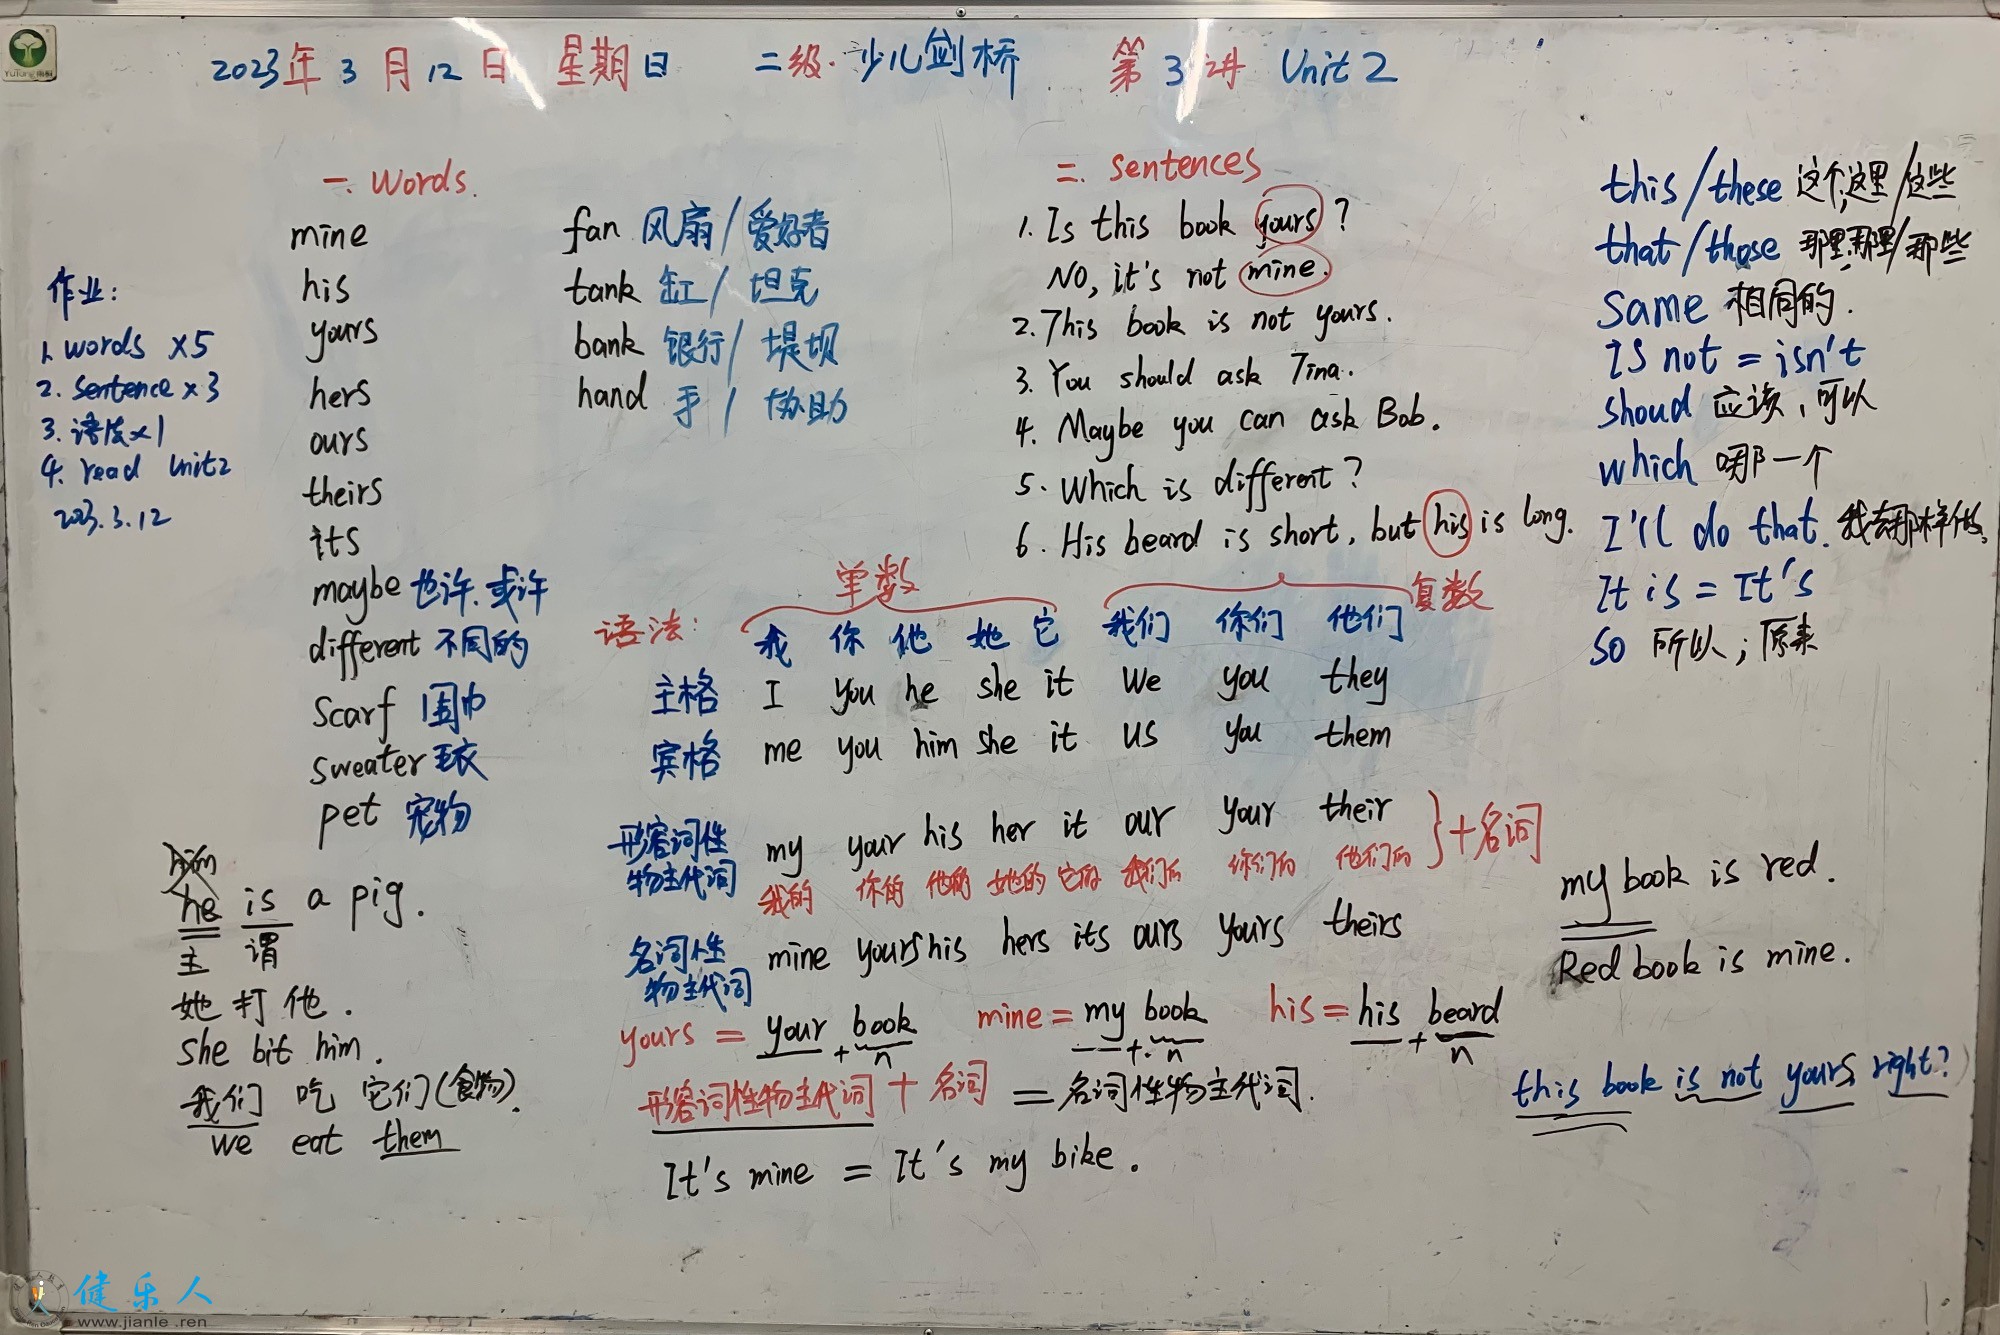 2023年3月12日 星期日 二级·少儿剑桥 第3讲 Unit 2
作业:
1. words ×5
2. sentence ×3
3. 语法×1
4. read Unit2
2023.3.12
一. Words.
mine
his
yours
hers
ours
theirs
its
maybe 也许、或许
different 不同的
scarf 围巾
sweater 毛衣
pet 宠物
fan 风扇/爱好者
tank 缸/坦克
bank 银行/堤坝
hand 手/协助
二. sentences
1. Is this book yours?
NO, it's not mine.
2. This book is not yours.
3. You should ask Tina.
4. Maybe you can ask Bob.
5. Which is different?
6. His beard is short, but his is long.
this/these 这个,这里/这些
that/those 那里,那里/那些
same 相同的.
IS not = isn't
shoud 应该,可以
which 哪一个
I'll do that. 我去那样做。
It is = It's
so 所以;原来
单数 复数
语法: 我 你 他 她 它 我们 你们 他们
主格 I you he she it we you they
宾格 me you him she it us you them
形容词性
物主代词 my your his her it our your their }+名词
我的 你的 他的 她的 它的 我们的 你们的 他们的
名词性
物主代词 mine yours his hers its ours yours theirs
yours = your + book n mine = my + book n his = his + beard n
形容词性物主代词 + 名词 = 名词性物主代词.
It's mine = It's my bike.
him
he is a pig.
主 谓
她 打 他.
she bit him.
我们 吃 它们(食物).
we eat them
my book is red.
Red book is mine.
this book is not yours, right?
健乐人
www.jianle.ren